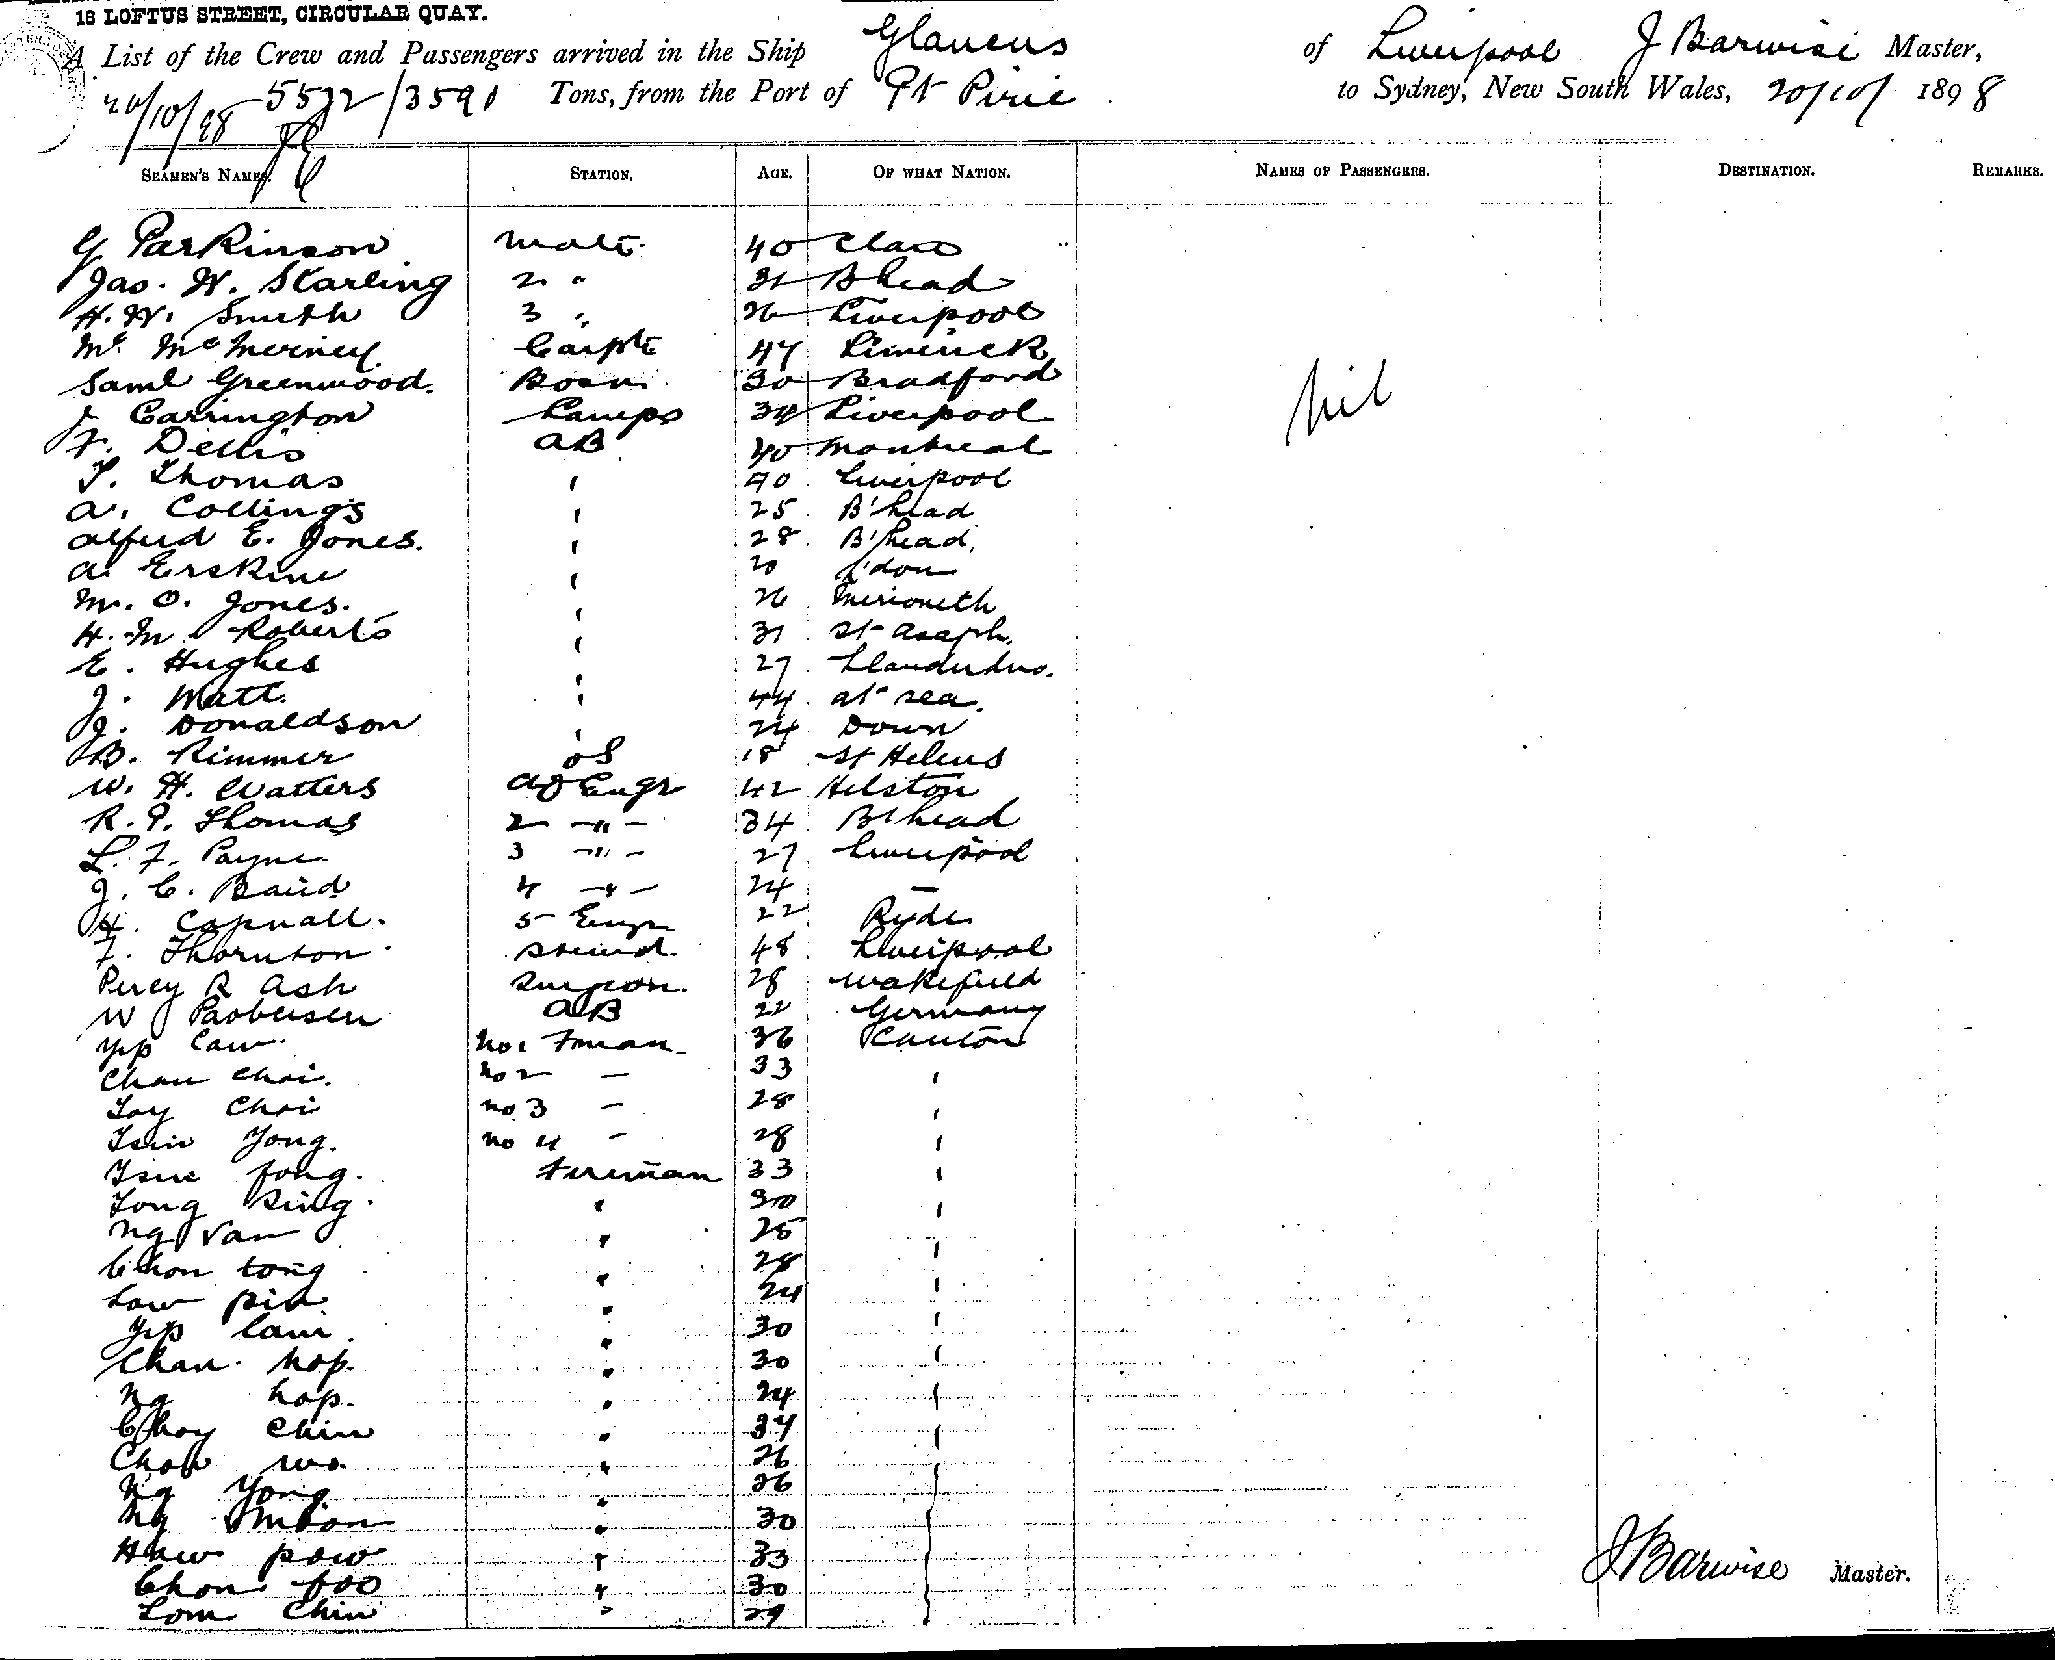 18 LOFTUS STREET, CIRCULAR QUAY.
A List of the Crew and Passengers arrived in the Ship Glaucus of Liverpool J Barwise Master,
20/10/98 5572/3591 Tons, from the Port of Pt Pirie to Sydney, New South Wales, 20/10/ 1898
SEAMEN'S NAMES. STATION. AGE. OF WHAT NATION. NAMES OF PASSENGERS. DESTINATION. REMARKS.
G Parkinson Mate 40
Jas. W. Starling 2 " 31 B'head
H. W. Smith 3 " 26 Liverpool
Carptr 47 Limerick
Saml Greenwood. Bosn 30 Bradford
nil
J Carrington Lamps 34 Liverpool
F. Dellis AB 40 Montreal
T. Thomas " 40 Liverpool
A. Collings " 25 B'head
Alfred E. Jones. " 28 B'head.
A. Erskine " 20 L'don
M. O. Jones. " 26 Merioneth
H. M. Roberts " 31 St Asaph.
E. Hughes " 27 Llandudno.
J. Watt. " 44 at sea.
J. Donaldson " 24 Down
B. Rimmer OS 18 St Helens
W. H. Watters Engr 42 Helston
R. P. Thomas 2 -"- 34 B'head
L. F. Payne 3 -"- 27 Liverpool
J. C. Baird 4 -"- 24 —
H. Copnall. 5 Engr 22 Ryde
F. Thornton Steward 48 Liverpool
Percy R Ash Surgeon. 28 Wakefield
W AB 22 Germany
Yip Lam No 1 Fman 36 Canton
Chan Choi. No 2 — 33 "
Loy Choi No 3 — 28 "
Yong. No 4 — 28 "
fong. Fireman 33 "
Tong Sing. " 30 "
Ng Van " 25 "
Chon tong " 28 "
Law " 24 "
Yip Lam. " 30 "
Chan hop. " 30 "
Ng hop. " 24 "
Choy Chin " 34 "
wo. " 26 "
Ng Yong " 26
Ng " 30
paw " 33
J Barwise Master.
Chon foo " 30
Lom Chin " 29